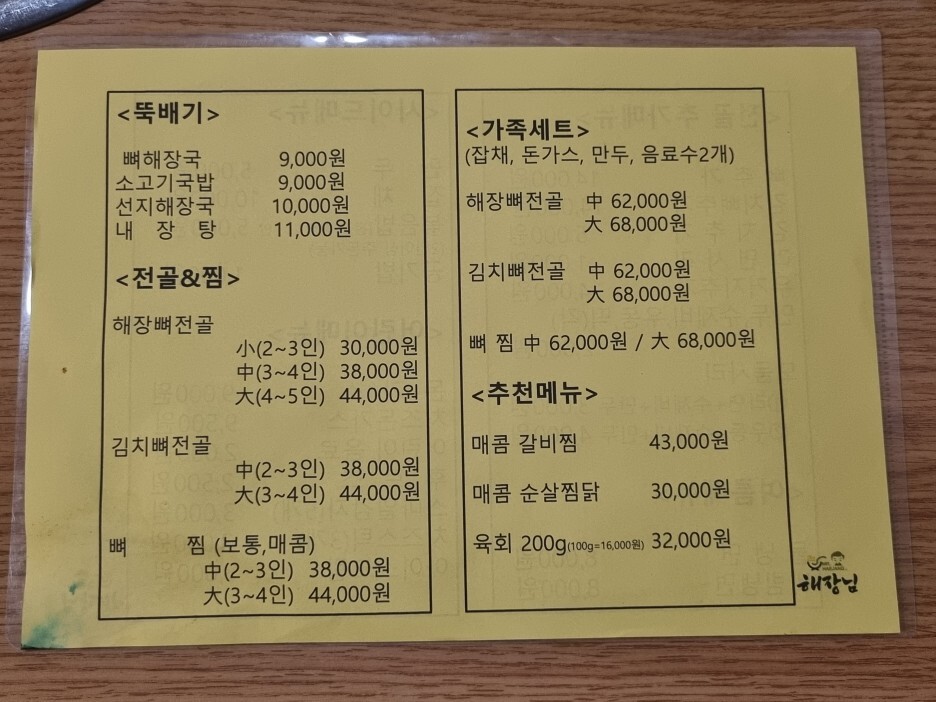 <뚝배기>
뼈해장국 9,000원
소고기국밥 9,000원
선지해장국 10,000원
내 장 탕 11,000원
<전골&찜>
해장뼈전골
小(2~3인) 30,000원
中(3~4인) 38,000원
大(4~5인) 44,000원
김치뼈전골
中(2~3인) 38,000원
大(3~4인) 44,000원
뼈 찜 (보통,매콤)
中(2~3인) 38,000원
大(3~4인) 44,000원
<가족세트>
(잡채, 돈가스, 만두, 음료수2개)
해장뼈전골 中 62,000원
大 68,000원
김치뼈전골 中 62,000원
大 68,000원
뼈 찜 中 62,000원 / 大 68,000원
<추천메뉴>
매콤 갈비찜 43,000원
매콤 순살찜닭 30,000원
육회 200g(100g=16,000원) 32,000원
해장님